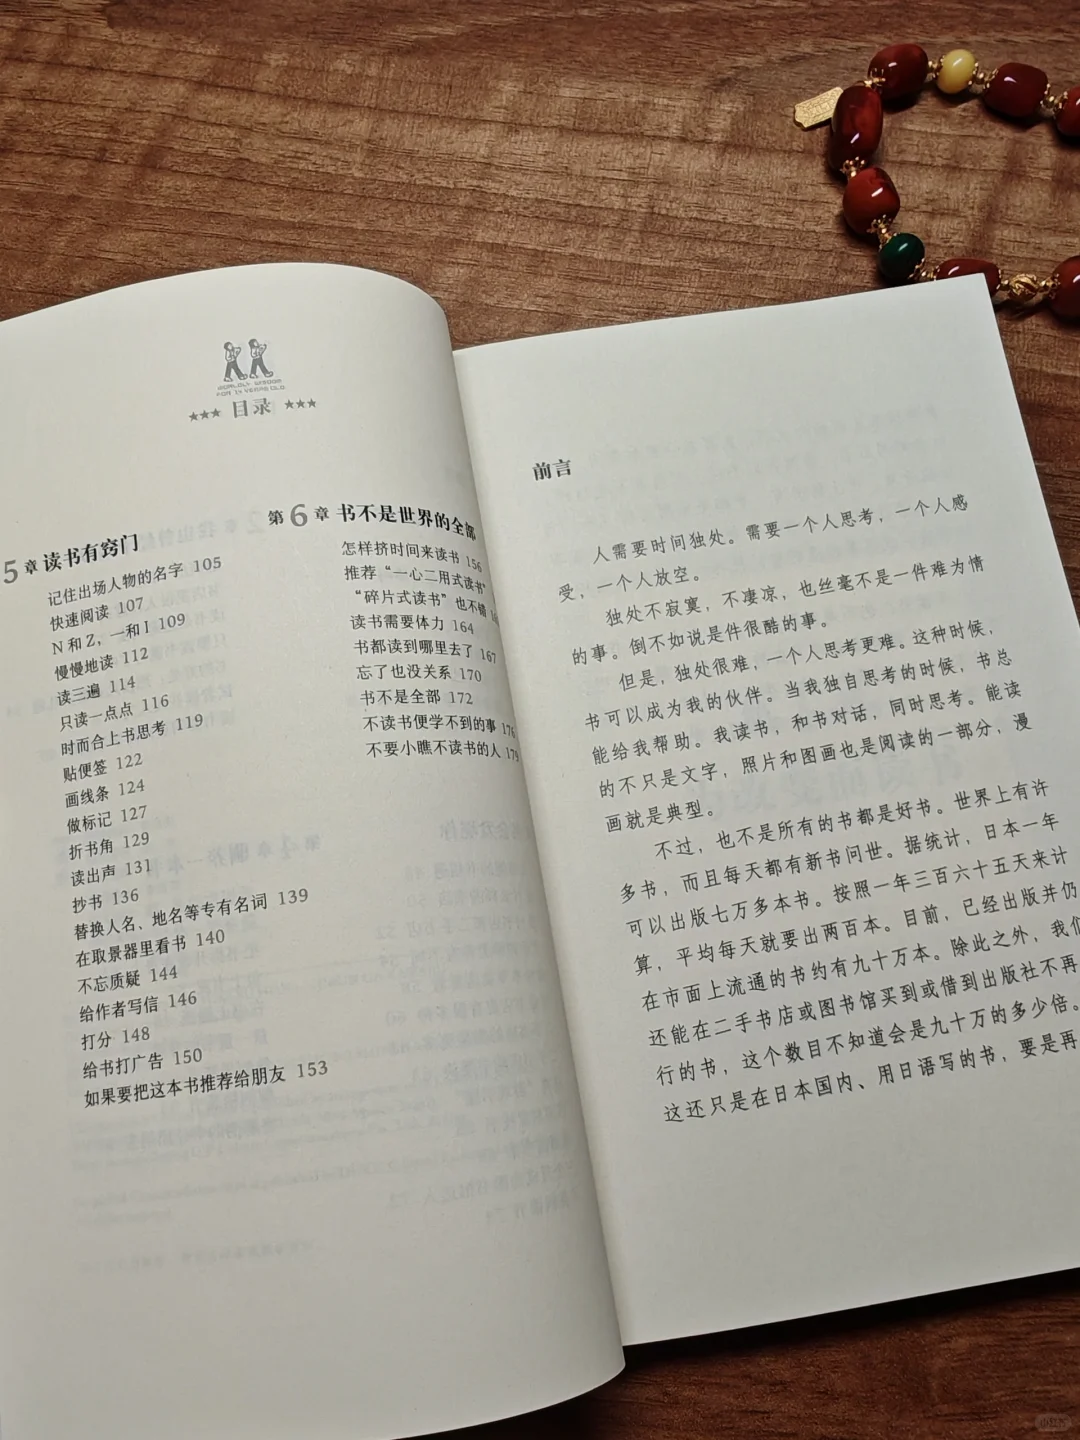 WORLDLY WISDOM
FOR 14 YEARS OLD
★★★ 目录 ★★★
5 章 读书有窍门
记住出场人物的名字 105
快速阅读 107
N 和 Z，一和 I 109
慢慢地读 112
读三遍 114
只读一点点 116
时而合上书思考 119
贴便签 122
画线条 124
做标记 127
折书角 129
读出声 131
抄书 136
替换人名、地名等专有名词 139
在取景器里看书 140
不忘质疑 144
给作者写信 146
打分 148
给书打广告 150
如果要把这本书推荐给朋友 153
第 6 章 书不是世界的全部
怎样挤时间来读书 156
推荐“一心二用式读书”
“碎片式读书”也不错
读书需要体力 164
书都读到哪里去了 167
忘了也没关系 170
书不是全部 172
不读书便学不到的事 176
不要小瞧不读书的人 179
前言
人需要时间独处。需要一个人思考，一个人感
受，一个人放空。
独处不寂寞，不凄凉，也丝毫不是一件难为情
的事。倒不如说是件很酷的事。
但是，独处很难，一个人思考更难。这种时候，
书可以成为我的伙伴。当我独自思考的时候，书总
能给我帮助。我读书，和书对话，同时思考。能读
的不只是文字，照片和图画也是阅读的一部分，漫
画就是典型。
不过，也不是所有的书都是好书。世界上有许
多书，而且每天都有新书问世。据统计，日本一年
可以出版七万多本书。按照一年三百六十五天来计
算，平均每天就要出两百本。目前，已经出版并仍
在市面上流通的书约有九十万本。除此之外，我们
还能在二手书店或图书馆买到或借到出版社不再
行的书，这个数目不知道会是九十万的多少倍。
这还只是在日本国内、用日语写的书，要是再